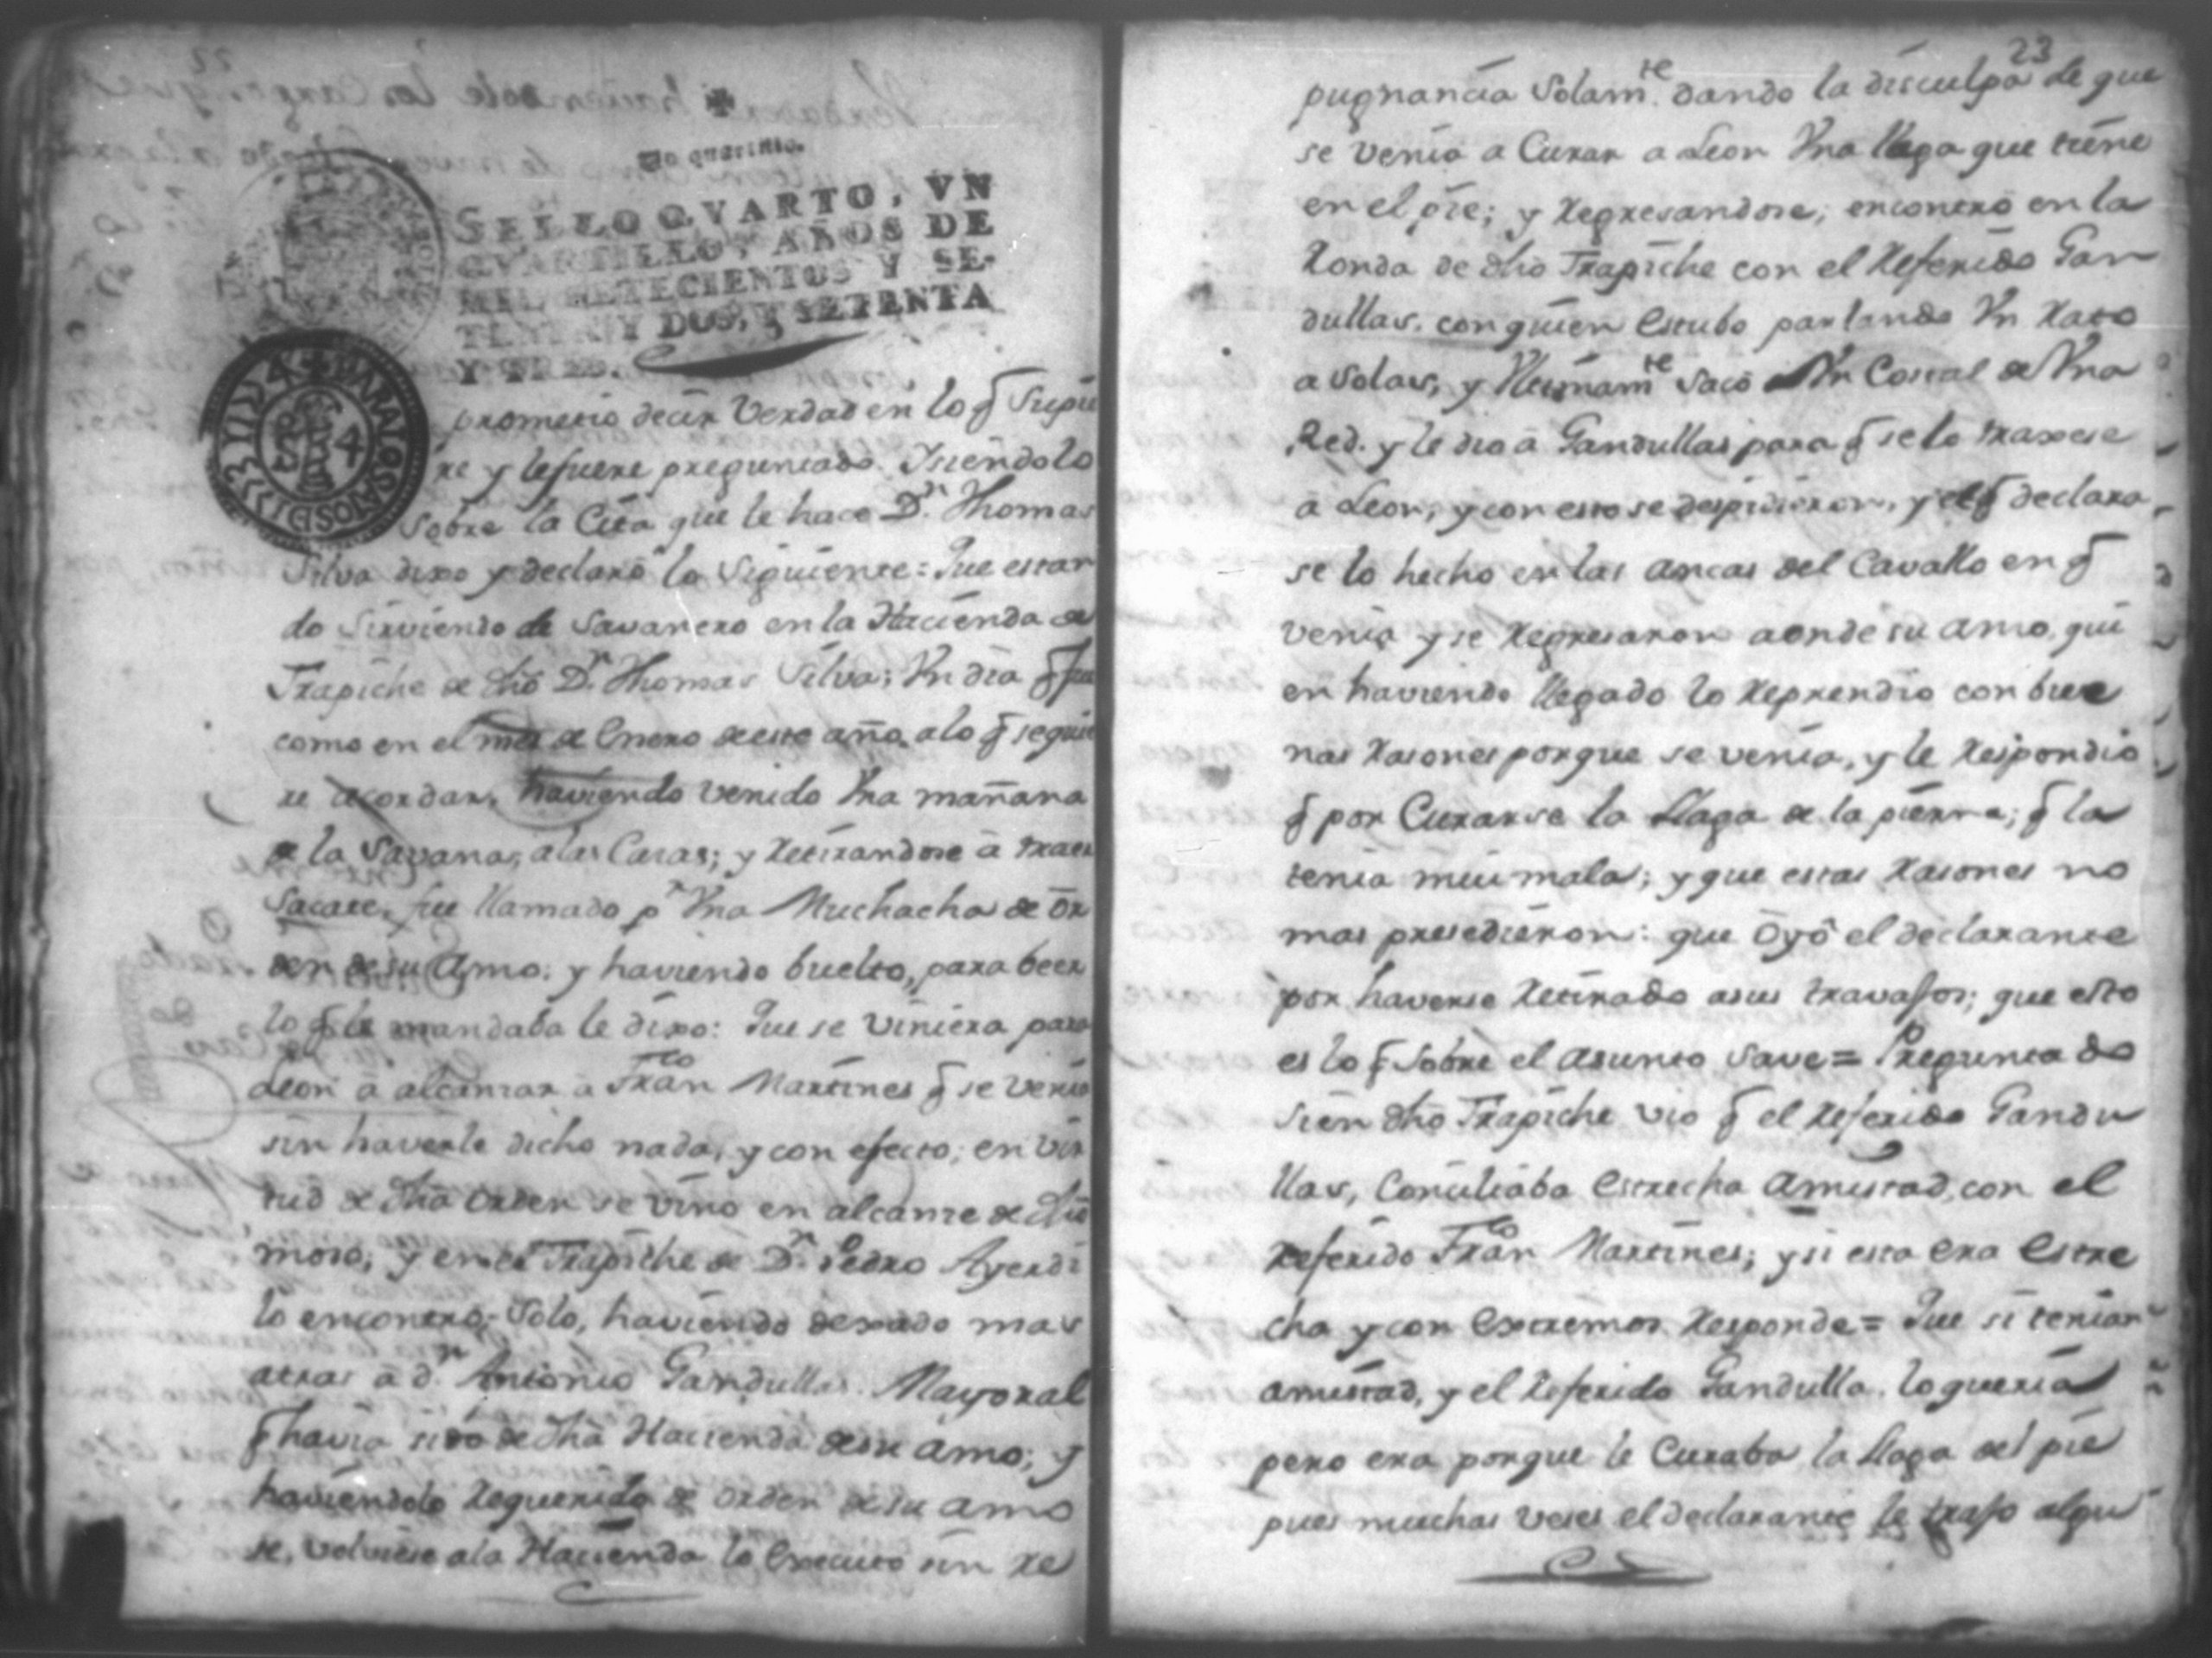 Vn quartillo.
SELLO QVARTO, VN
QVARTILLO, AÑOS DE
MIL SETECIENTOS Y SE-
TENTA Y DOS, Y SETENTA
Y TRES.
PARA LOS AÑOS D 1773 Y 1774
prometio decir Verdad en lo q̄ Supie
re y le fuere preguntado. Ysiendolo
Sobre la Cita que le hace Dn. Thomas
Silva dixo y declarô lo Siguiente: Que estan
do Sirviendo de Savanero en la Hacienda de
Trapiche de dho Dn. Thomas Silva; Vn dia q̄ fue
como en el mes de Enero de este año, a lo q̄ se quie
re acordar, haviendo venido Vna mañana
de la Savana, a las Casas; y Retirandose â traer
Sacate, fue llamado pr Vna Muchacha de Or
den de su Amo; y haviendo buelto, para beer
lo q̄ le mandaba le dixo: Que se Viniera para
Leon â alcanzar â Franco Martines q̄ se venia
sin haverle dicho nada, y con efecto; en Vir
tud de dha orden se vino en alcanze de dho
moso; y en el Trapiche de Dn. Pedro Ayerdi
lo encontro; Solo, haviendo dexado mas
atras â dn. Antonio Gandullas. Mayoral
q̄ havia sido de dha Hacienda de su amo; y
haviendolo Requerido de orden de su amo
se, volviese a la Hacienda lo Executo sin Re
23
pugnancia Solamte. dando la disculpa de que
se venia a Curar a Leon Vna llaga que tiene
en el pie; y Regresandose; encontrô en la
Ronda de dho Trapiche con el Referido Gan
dullas. con quien Estubo parlando Vn Rato
a Solas, y Vltimamte Sacô Vn Costal de Vna
Red. y le dio â Gandullas para q̄ se lo traxese
â Leon, y con esto se despidieron, y el q̄ declara
se lo hecho en las ancas del Cavallo en q̄
venia y se Regresaron a onde su amo, qui
en haviendo llegado lo Reprendio con bue
nas Rasones porque se venia, y le Respondio
q̄ por Curarse la llaga de la pierna; q̄ la
tenia mui mala; y que estas Rasones no
mas presedieron: que Oyô el declarante
por haverse Retirado a sus travajos; que esto
es lo q̄ Sobre el asunto Save = Preguntado
Si en dho Trapiche vio q̄ el Referido Gandu
llas, Consiliaba Estrecha Amistad, con el
Referido Franco Martines; y si esta era Estre
cha y con Extremos Responde = Que si tenian
amistad, y el Referido Gandulla. lo queria
pero era porque le Curaba la llaga del pie
pues muchas Veses el declarante le trajo algu